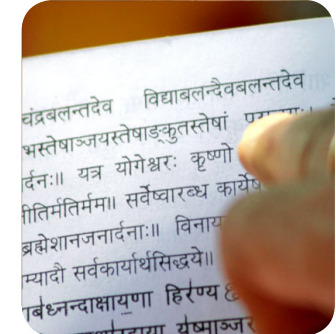 चंद्रबलन्तदेव विद्याबलन्दैवबलन्तदेव
भस्तेषाञ्जयस्तेषाङ्कुतस्तेषां
र्दनः॥ यत्र योगेश्वरः कृष्णो
र्मतिर्मम॥ सर्वेष्वारब्ध कार्येष
ब्रह्मेशानजनार्दनाः॥ विनाय
म्यादौ सर्वकार्यार्थसिद्धये॥
बध्नन्दाक्षायणा हिरण्य